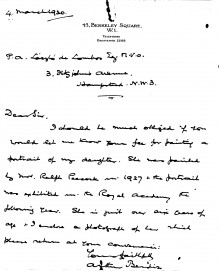 4 March 1930.
45, BERKELEY SQUARE,
W.1.
TELEPHONE
P. A. de László de Lombos Esq M.V.O.
3. Fitzjohns Avenue.
Hampstead. N.W.3.
Dear Sir.
I should be much obliged if you
would let me know your fee for painting a
portrait of my daughter. She was painted
by Mr. Ralph Peacock in 1927 & the portrait
was exhibited in the Royal Academy the
following year. She is just over six years of
age & I enclose a photograph of her which
please return at your convenience.
Yours faithfully